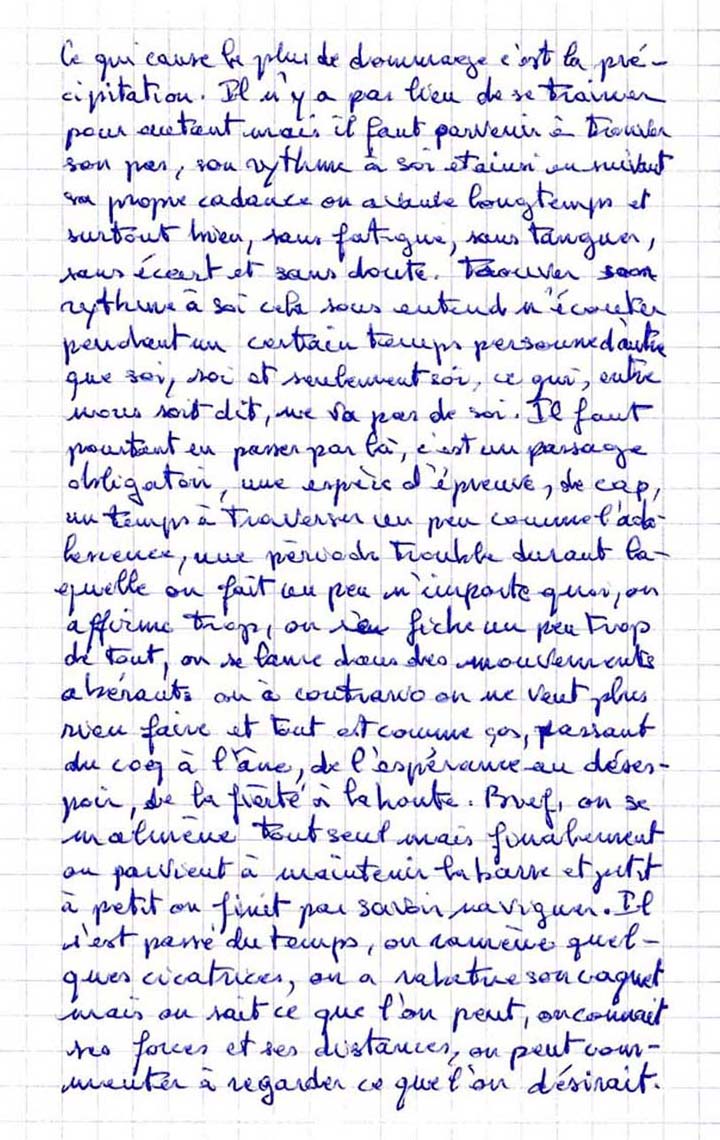 Ce qui cause le plus de dommage c'est la pré-
cipitation. Il n'y a pas lieu de se traîner
pour autant mais il faut parvenir à trouver
son pas, son rythme à soi et ainsi en suivant
sa propre cadance on avance longtemps et
surtout bien, sans fatigue, sans tanguer,
sans écart et sans doute. Trouver son
rythme à soi cela sous entend n'écouter
pendant un certain temps personne d'autre
que soi, soi et seulement soi, ce qui, entre
nous soit dit, ne va pas de soi. Il faut
pourtant en passer par là, c'est un passage
obligatoire, une espèce d'épreuve, de cap,
un temps à traverser un peu comme l'ado-
lescence, une période trouble durant la-
quelle on fait un peu n'importe quoi, on
affirme trop, on s'en fiche un peu trop
de tout, on se lance dans des mouvements
abérants ou à contrario on ne veut plus
rien faire et tout est comme ças, passant
du coq à l'âne, de l'espérance au déses-
poir, de la fierté à la honte. Bref, on se
malmène tout seul mais finalement
on parvient à maintenir la barre et petit
à petit on finit par savoir naviguer. Il
s'est passé du temps, on ramène quel-
ques cicatrices, on a rabattu son caquet
mais on sait ce que l'on peut, on connait
ses forces et ses distances, on peut com-
mencer à regarder ce que l'on désirait.